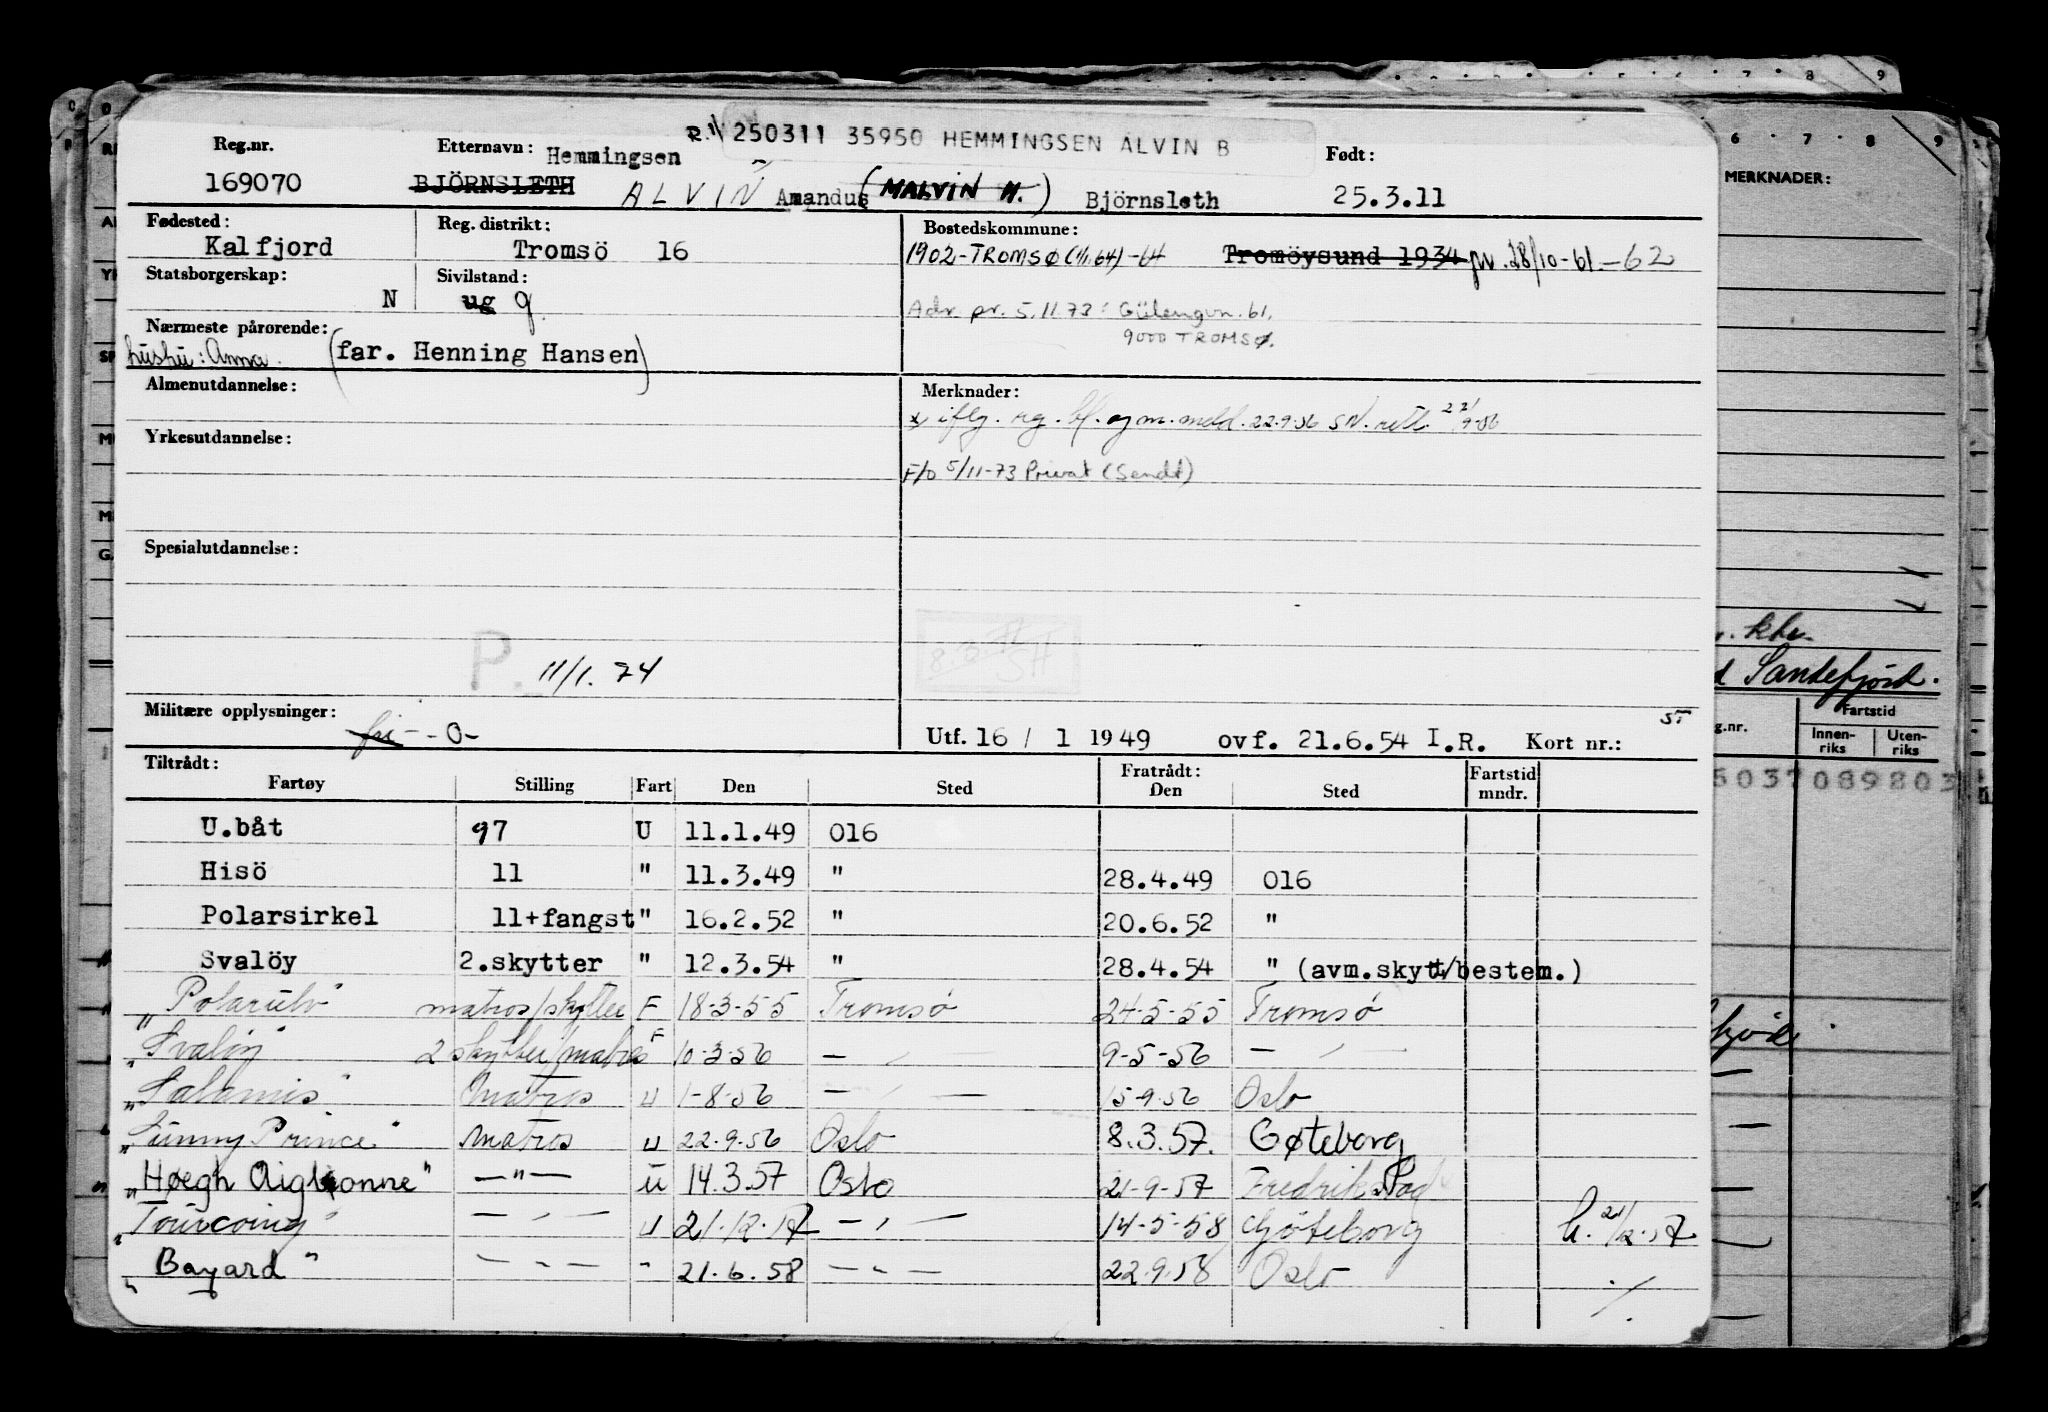 R.11 250311 35950 HEMMINGSEN ALVIN B
Reg.nr. Etternavn: Hemmingsen Født:
169070 BJÖRNSLETH ALVIN Amandus (MALVIN H.) Björnsleth 25.3.11
Fødested: Reg. distrikt: Bostedskommune:
Kalfjord Tromsö 16 1902-TROMSØ (1/1.64) -64 Tromöysund 1934 pr. 28/10-61.-62
Statsborgerskap: Sivilstand:
N ug g
Adr. pr. 5.11.73: Gülengvn. 61,
9000 TROMSØ.
Nærmeste pårørende:
hustru: Anna. (far. Henning Hansen)
Almenutdannelse: Merknader:
x iflg. rg. bf. og m. meld. 22.9.56 SN. rett. 22/9-56
Yrkesutdannelse:
F/O 5/11-73 Privat (Sendt)
Spesialutdannelse:
P. 11/1. 74
Militære opplysninger:
fri - -0-
Utf. 16 / 1 1949 ovf. 21.6.54 I.R. Kort nr.:
Tiltrådt: Fratrådt: Fartstid
Fartøy Stilling Fart Den Sted Den Sted mndr.
U.båt 97 U 11.1.49 016
Hisö 11 " 11.3.49 " 28.4.49 016
Polarsirkel 11+fangst " 16.2.52 " 20.6.52 "
Svalöy 2.skytter " 12.3.54 " 28.4.54 " (avm.skytt/bestem.)
"Polarulv" matros/skytter F 18-3-55 Tromsö 24-5-55 Tromsö
"Svalöy" 2 skytter/matros F 10-3-56 — " — 9-5-56 — " —
"Salamis" Matros U 1-8-56 — " — 15-9-56 Oslo
"Sunny Prince" matros U 22.9.56 Oslo 8.3.57. Gøteborg
"Høegh Aiglonne" — " — U 14.3.57 Oslo 21-9-57 Fredrikstad
"Tourcoing" — " — U 21.12.57 — " — 14-5-58 Göteborg h. 21/12.57
"Bayard" — " — " 21.6.58 — " — 22.9.58 Oslo ./.
6 7 8 9
MERKNADER:
Sandefjord.
Fartstid
Innen-
riks
Uten-
riks
5037089803